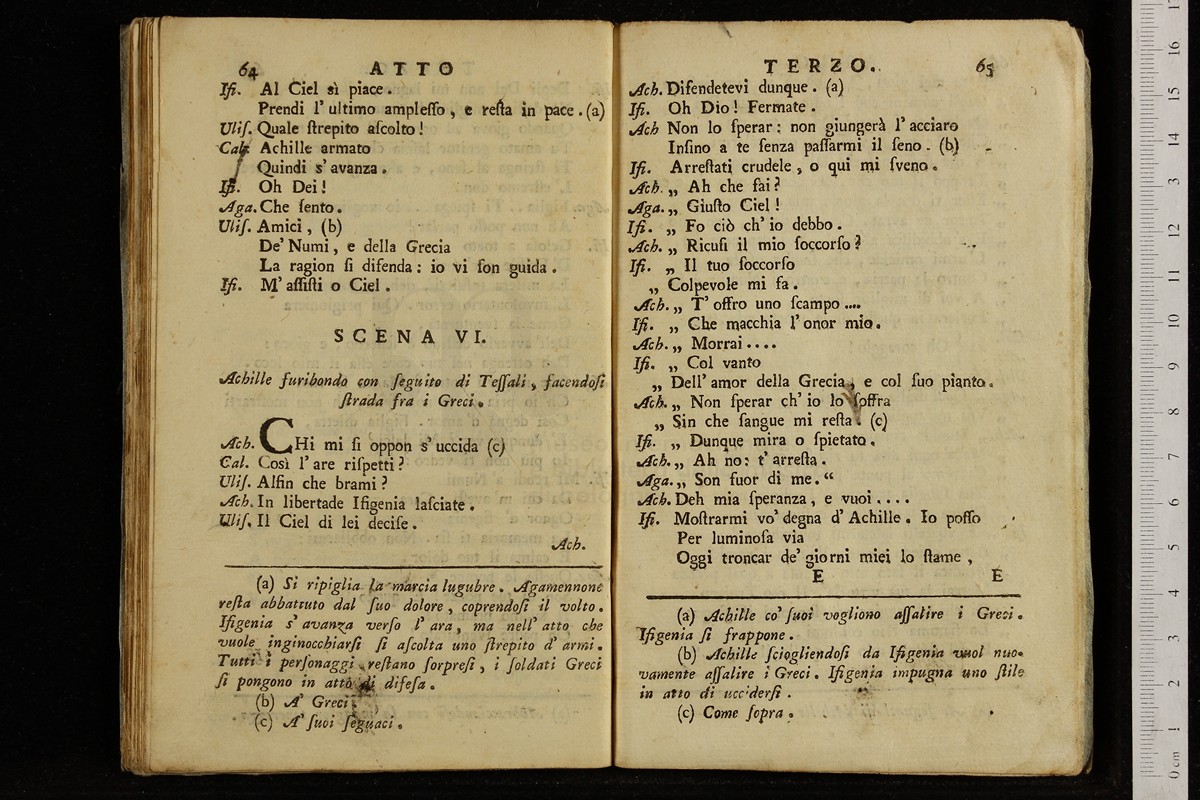 64 ATTO
Ifi. Al Ciel sì piace.
Prendi l' ultimo ampleſſo, e reſta in pace. (a)
Uliſ. Quale ſtrepito aſcolto!
Cal. Achille armato
Quindi s' avanza.
Ifi. Oh Dei!
Aga. Che ſento.
Uliſ. Amici, (b)
De' Numi, e della Grecia
La ragion ſi difenda: io vi ſon guida.
Ifi. M' aſſiſti o Ciel.
SCENA VI.
Achille furibondo con ſeguito di Teſſali, facendoſi
ſtrada fra i Greci.
Ach. CHi mi ſi oppon s' uccida (c)
Cal. Così l' are riſpetti?
Uliſ. Alfin che brami?
Ach. In libertade Ifigenia laſciate.
Uliſ. Il Ciel di lei deciſe.
Ach.
(a) Si ripiglia la marcia lugubre. Agamennone
reſta abbattuto dal ſuo dolore, coprendoſi il volto.
Ifigenia s' avanza verſo l' ara, ma nell' atto che
vuole inginocchiarſi ſi aſcolta uno ſtrepito d' armi.
Tutti i perſonaggi reſtano ſorpreſi, i ſoldati Greci
ſi pongono in atto di difeſa.
(b) A' Greci.
(c) A' ſuoi ſeguaci.
TERZO. 65
Ach. Difendetevi dunque. (a)
Ifi. Oh Dio! Fermate.
Ach Non lo ſperar: non giungerà l' acciaro
Inſino a te ſenza paſſarmi il ſeno. (b)
Ifi. Arreſtati crudele, o qui mi ſveno.
Ach. „ Ah che fai?
Aga. „ Giuſto Ciel!
Ifi. „ Fo ciò ch' io debbo.
Ach. „ Ricuſi il mio ſoccorſo?
Ifi. „ Il tuo ſoccorſo
„ Colpevole mi fa.
Ach. „ T' offro uno ſcampo ....
Ifi. „ Che macchia l' onor mio.
Ach. „ Morrai ....
Ifi. „ Col vanto
„ Dell' amor della Grecia, e col ſuo pianto.
Ach. „ Non ſperar ch' io lo ſoffra
„ Sin che ſangue mi reſta. (c)
Ifi. „ Dunque mira o ſpietato.
Ach. „ Ah no: t' arreſta.
Aga. „ Son fuor di me. “
Ach. Deh mia ſperanza, e vuoi ....
Ifi. Moſtrarmi vo' degna d' Achille. Io poſſo
Per luminoſa via
Oggi troncar de' giorni miei lo ſtame,
E E
(a) Achille co' ſuoi vogliono aſſalire i Greci.
Ifigenia ſi frappone.
(b) Achille ſciogliendoſi da Ifigenia vuol nuo-
vamente aſſalire i Greci. Ifigenia impugna uno ſtile
in atto di ucciderſi.
(c) Come ſopra.
0 cm 1 2 3 4 5 6 7 8 9 10 11 12 13 14 15 16 17